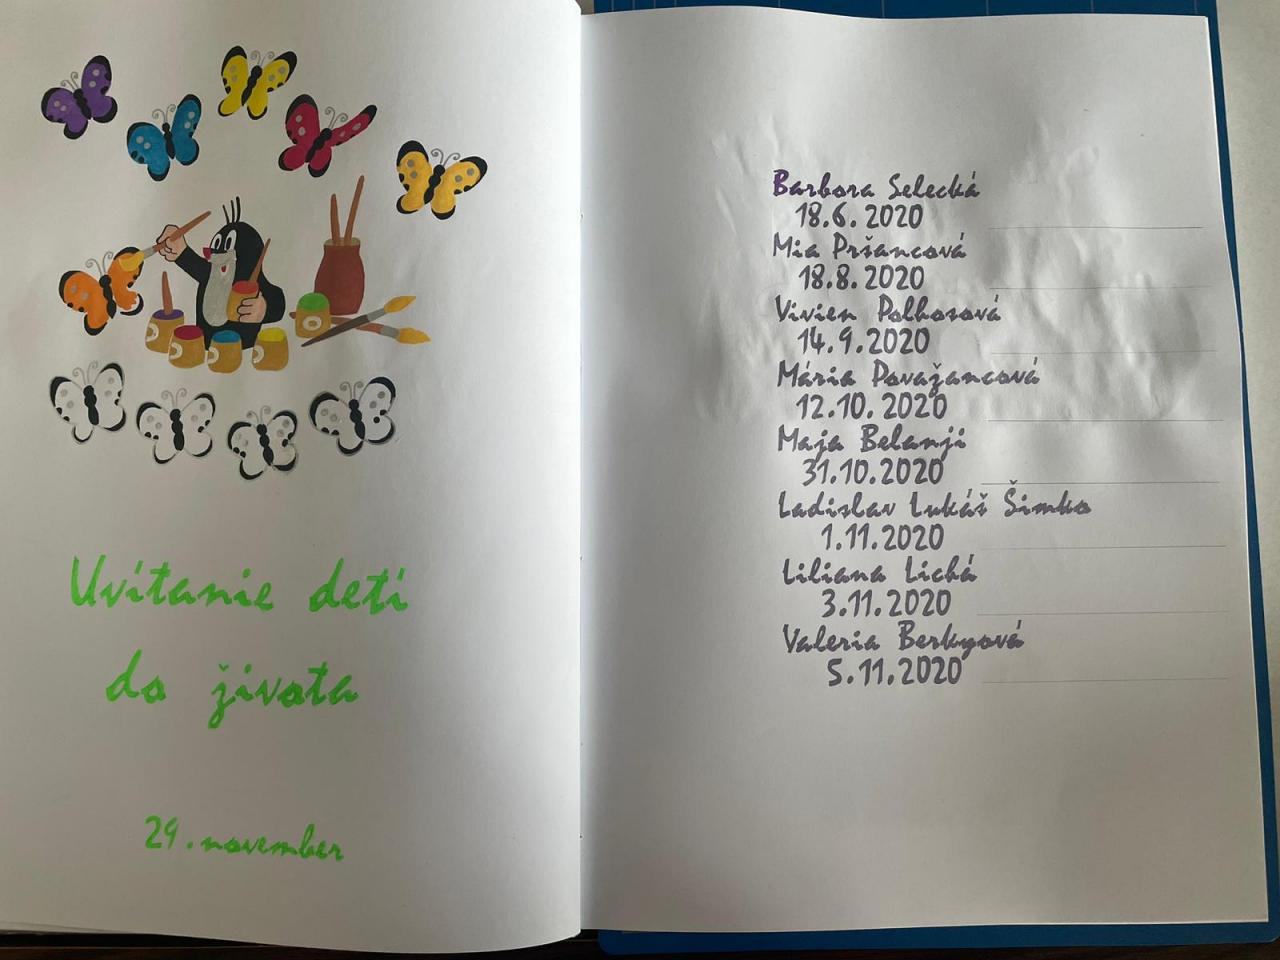 Uvítanie detí
do života
29. november
Barbora Selecká
18.6.2020
Mia Pršancová
18.8.2020
Vivien Polhosová
14.9.2020
Mária Považancová
12.10.2020
Maja Belanji
31.10.2020
Ladislav Lukáš Šimko
1.11.2020
Liliana Lichá
3.11.2020
Valeria Berkyová
5.11.2020